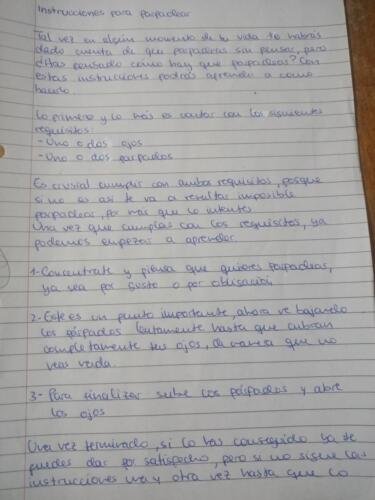 Instrucciones para parpadear
Tal vez en algún momento de tu vida te habrás
dado cuenta de que parpadeas sin pensar, pero
¿Has pensado cómo hay que parpadear? Con
estas instrucciones podrás aprender a como
hacerlo.
Lo primero y lo más es contar con los siguientes
requisitos:
- Uno o dos ojos
- Uno o dos párpados
Es crusial cumplir con ambos requisitos, porque
si no es así te va a resultar imposible
parpadear, por más que lo intentes.
Una vez que cumplas con los requisitos, ya
podemos empezar a aprender.
1- Concentrate y piensa que quieres parpadear,
ya sea por gusto o por obligación
2- Este es un punto importante, ahora ve bajando
los párpados lentamente hasta que cubran
completamente tus ojos, de manera que no
veas nada.
3- Para finalizar sube los párpados y abre
los ojos
Una vez terminado, si lo has conseguido ya te
puedes dar por satisfecho, pero si no sigue las
instrucciones una y otra vez hasta que lo